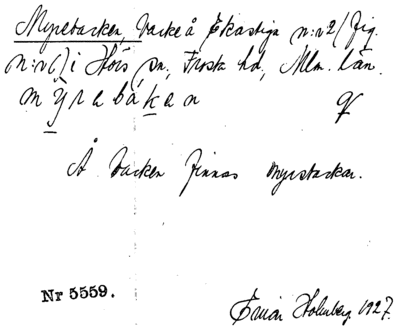 Myrebacken, backe å Ekastiga n:r 2 (fig.
n:r 6) i Hörs sn, Frosta hd, Mlm. län.
mỹrabåkan
Å backen finnas myrstackar.
Nr 5559.
Einar Holmberg 1927.